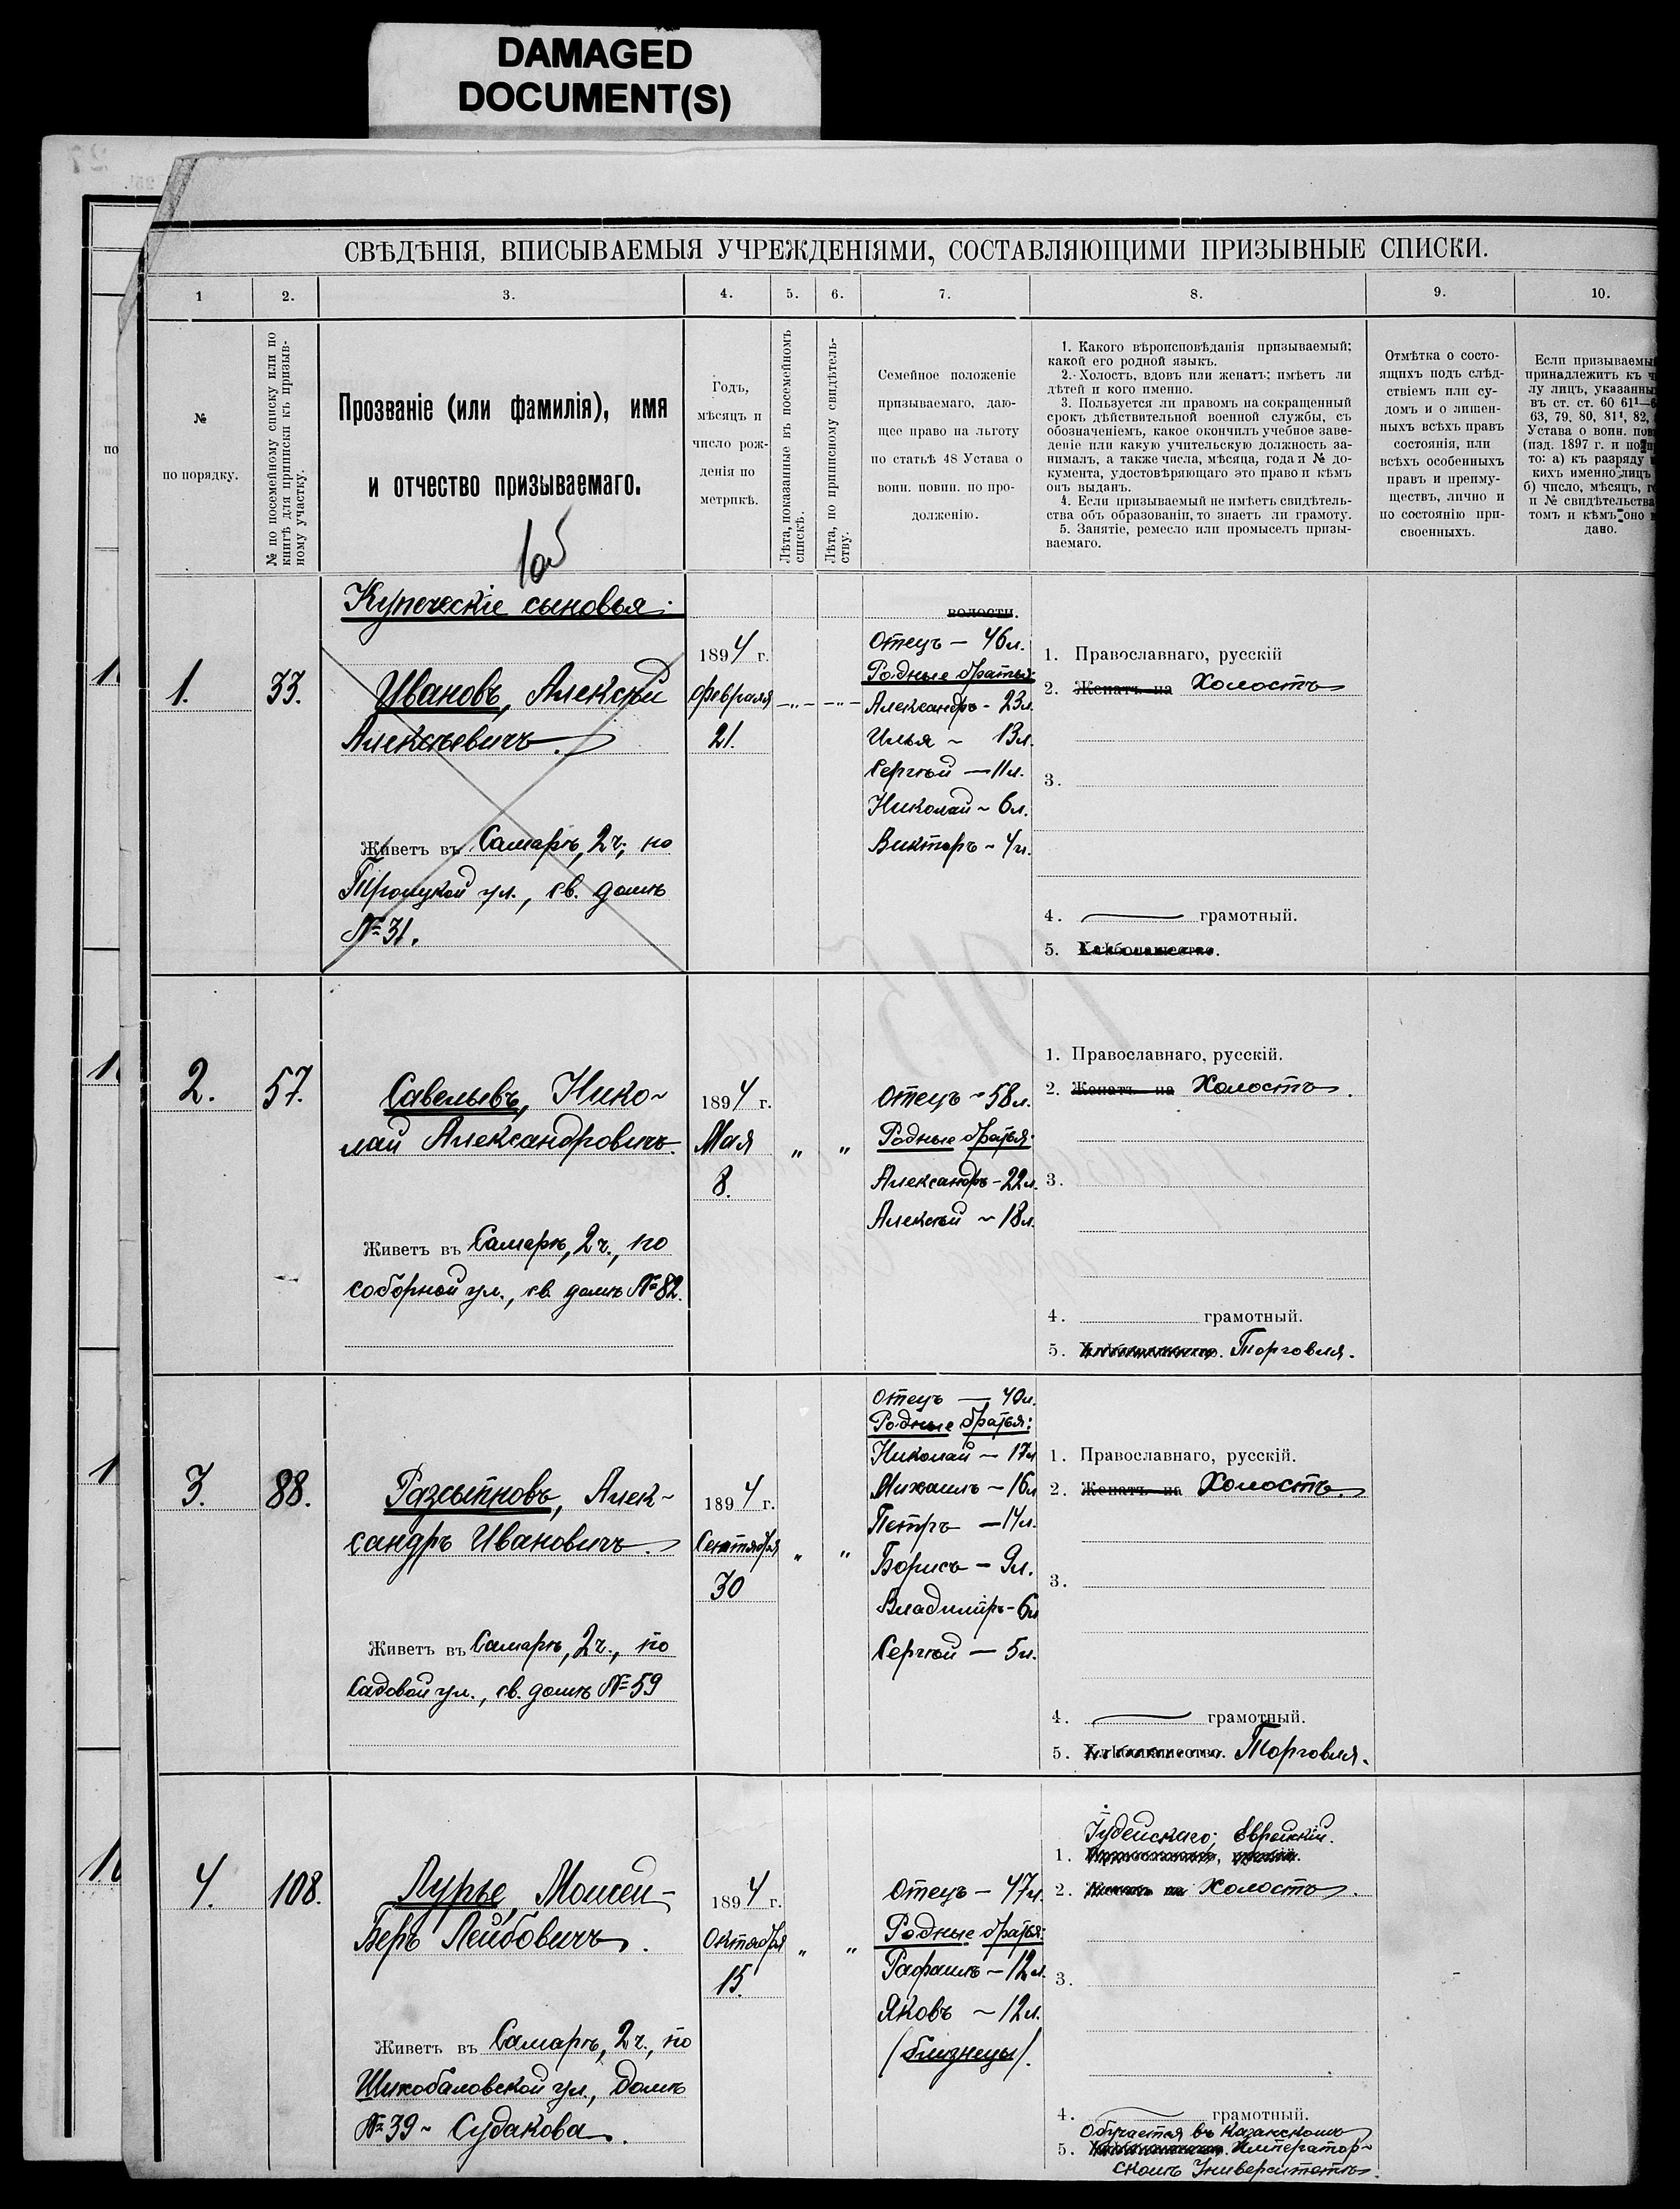 DAMAGED
DOCUMENT(S)
СВѢДѢНІЯ, ВПИСЫВАЕМЫЯ УЧРЕЖДЕНІЯМИ, СОСТАВЛЯЮЩИМИ ПРИЗЫВНЫЕ СПИСКИ.
1
2.
3.
4.
5.
6.
7.
8.
9.
10.
№
по порядку.
№ по посемейному списку или по
книгѣ для приписки къ призыв-
ному участку.
Прозваніе (или фамилія), имя
и отчество призываемаго.
Годъ,
мѣсяцъ и
число рож-
денія по
метрикѣ.
Лѣта, показанные въ посемейномъ
спискѣ.
Лѣта, по приписному свидѣтель-
ству.
Семейное положеніе
призываемаго, даю-
щее право на льготу
по статьѣ 48 Устава о
воин. повин. по про-
долженію.
1. Какого вѣроисповѣданія призываемый;
какой его родной языкъ.
2. Холостъ, вдовъ или женатъ; имѣетъ ли
дѣтей и кого именно.
3. Пользуется ли правомъ на сокращенный
срокъ дѣйствительной военной службы, съ
обозначеніемъ, какое окончилъ учебное заве-
деніе или какую учительскую должность за-
нималъ, а также числа, мѣсяца, года и № до-
кумента, удостовѣряющаго это право и кѣмъ
онъ выданъ.
4. Если призываемый не имѣетъ свидѣтель-
ства объ образованіи, то знаетъ ли грамоту.
5. Занятіе, ремесло или промыселъ призы-
ваемаго.
Отмѣтка о состо-
ящихъ подъ слѣд-
ствіемъ или су-
домъ и о лишен-
ныхъ всѣхъ правъ
состоянія, или
всѣхъ особенныхъ
правъ и преиму-
ществъ, лично и
по состоянію при-
своенныхъ.
Если призываемый
принадлежитъ къ
лу лицъ, указанны
въ ст. ст. 60 61¹—
63, 79, 80, 81¹, 82,
Устава о воин. пов
(изд. 1897 г. и по
то: а) къ разряду
кихъ именно лицъ
б) число, мѣсяцъ,
и № свидѣтельства
томъ и кѣмъ оно
дано.
Купеческіе сыновья:
1.
33.
Ивановъ, Алексѣй
Алексѣевичъ.
Живетъ въ Самарѣ, 2 ч., по
Троицкой ул., св. домъ
№ 31.
1894 г.
Февраля
21.
волости.
Отецъ — 46 л.
Родные братья:
Александръ - 23 л.
Илья ~ 13 л.
Сергѣй — 11 л.
Николай ~ 6 л.
Викторъ ~ 4 г.
1. Православнаго, русскій
2. Женатъ на Холостъ
3.
4. грамотный.
5. Хлѣбопашество.
2.
57.
Савельевъ, Нико-
лай Александровичъ.
Живетъ въ Самарѣ, 2 ч., по
Соборной ул., св. домъ № 82.
1894 г.
Мая
8.
" "
Отецъ ~ 58 л.
Родные братья:
Александръ - 22 л.
Алексѣй ~ 18 л.
1. Православнаго, русскій.
2. Женатъ на Холостъ.
3.
4. грамотный.
5. Хлѣбопашество. Торговля.
3.
88.
Разсыпновъ, Алек-
сандръ Ивановичъ.
Живетъ въ Самарѣ, 2 ч., по
Садовой ул., св. домъ № 59
1894 г.
Сентября
30
" "
Отецъ — 40 л.
Родные братья:
Николай — 17 л
Михаилъ — 16 л
Петръ — 14 л.
Борисъ — 9 л.
Владиміръ - 6 л
Сергѣй — 5 л.
1. Православнаго, русскій.
2. Женатъ на Холостъ.
3.
4. грамотный.
5. Хлѣбопашество. Торговля.
4.
108.
Лурье, Мошей-
Беръ Лейбовичъ.
Живетъ въ Самарѣ, 2 ч., по
Шихобаловской ул., домъ
№ 39 ~ Судакова.
1894 г.
Октября
15.
" "
Отецъ — 47 л.
Родные братья:
Рафаилъ — 12 л.
Яковъ ~ 12 л.
(близнецы).
Іудейскаго, Еврейскій.
1. Православнаго, русскій.
2. Женатъ на Холостъ.
3.
4. грамотный.
Обучается въ Казанскомъ
5. Хлѣбопашество. Император-
скомъ Университетѣ.